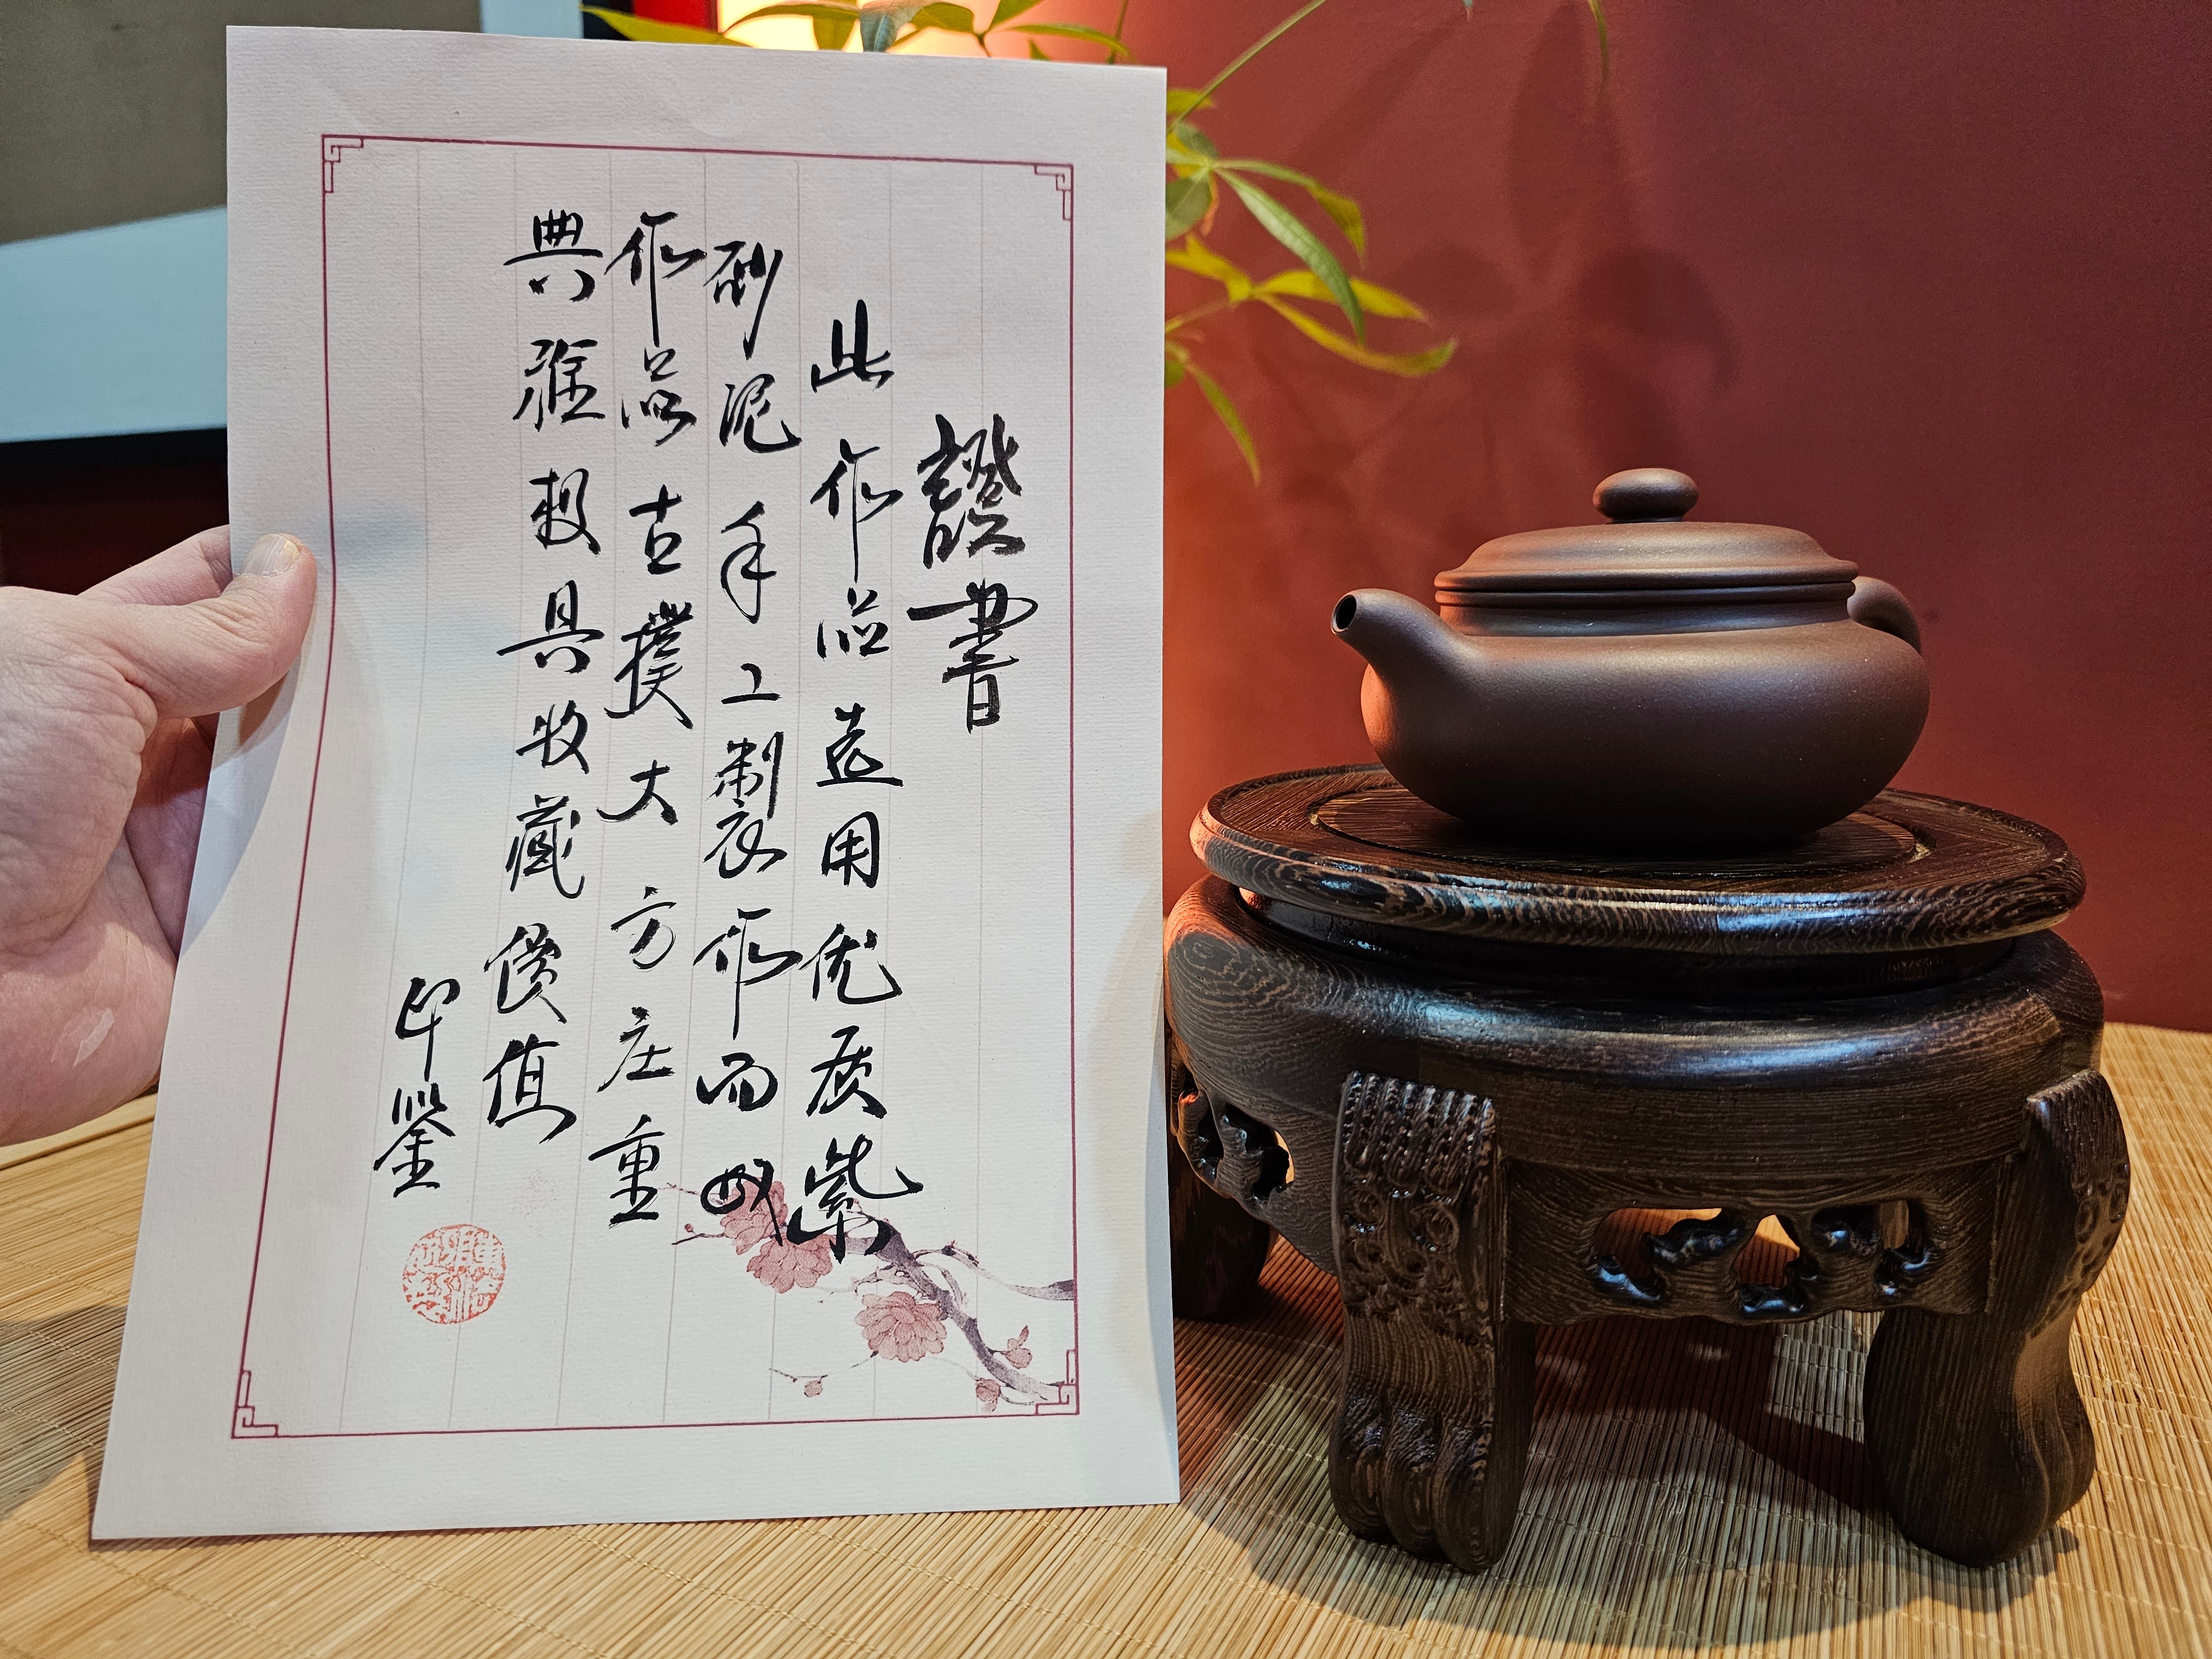 證書
此作品选用优质紫
砂泥手工製作而成
作品古撲大方庄重
典雅极具收藏價值
印鑒